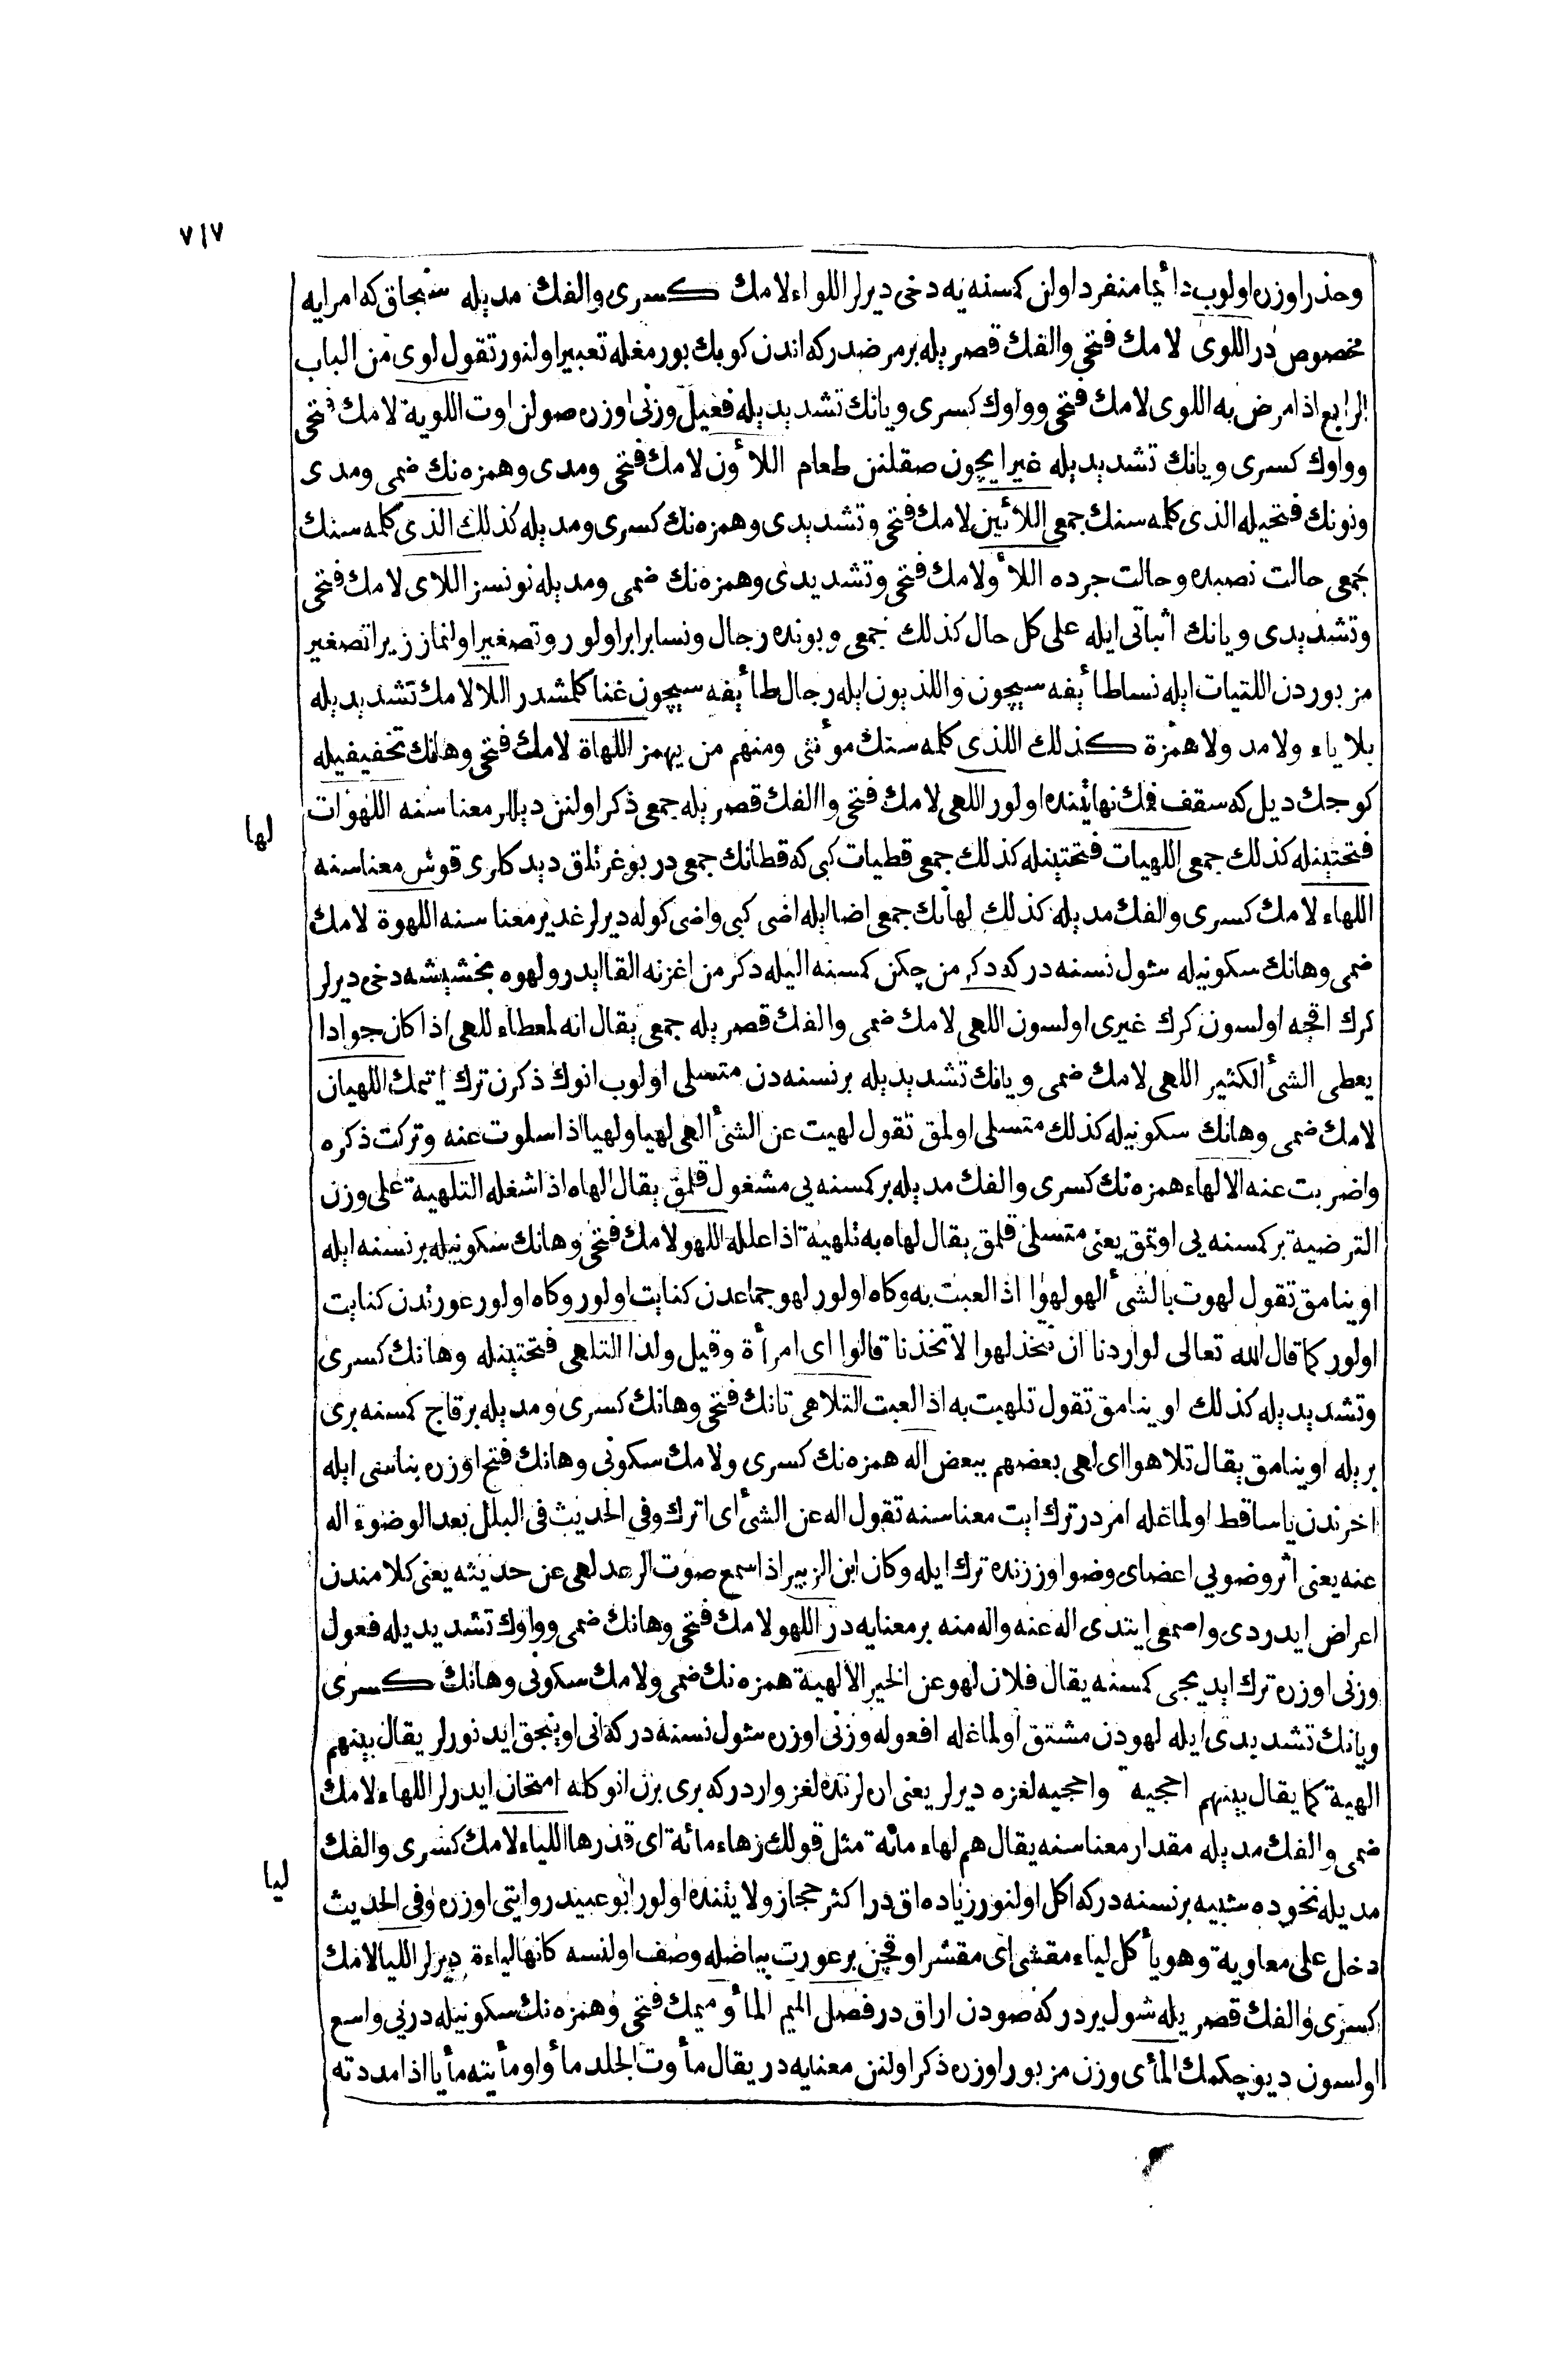 ٧١٧
وحذر اوزره اولوب دائما منفرد اولن كمسنه يه دخى ديرلر اللواء لامك كسرى والفك مديله سنجاق كه امرايه
مخصوص در اللوى لامك فتحى والفك قصريله بر مرضدر كه اندن كوبك بورمغله تعبير اولنور تقول لوى من الباب
الرابع اذا مرض به اللوى لامك فتحى وواوك كسرى ويانك تشديديله فعيل وزنى اوزره صولن اوت اللوية لامك فتحى
وواوك كسرى ويانك تشديديله غير ايچون صقلنن طعام اللاؤن لامك فتحى ومدى وهمزه نك ضمى ومدى
ونونك فتحيله الذى كلمه سنك جمعى اللائين لامك فتحى وتشديدى وهمزه نك كسرى ومديله كذلك الذى كلمه سنك
جمعى حالت نصبده وحالت جرده اللاؤ لامك فتحى وتشديدى وهمزه نك ضمى ومديله نونسز اللاى لامك فتحى
وتشديدى ويانك اثباتى ايله على كل حال كذلك جمعى وبونده رجال ونسا برابر اولور وتصغير اولنماز زيرا تصغير
مزبوردن اللتيات ايله نسا طائفه سيچون واللذيون ايله رجال طائفه سيچون غنا كلمشدر اللا لامك تشديديله
بلا ياء ولا مد ولا همزة كذلك اللذى كلمه سنك مؤنثى ومنهم من يهمز اللهاة لامك فتحى وهانك تخفيفيله
كوجك ديل كه سقف فمك نهايتنده اولور اللهى لامك فتحى والفك قصريله جمعى ذكر اولنن ديللر معناسنه اللهوات
لها
فتحتينله كذلك جمعى اللهيات فتحتينله كذلك جمعى قطيات كبى كه قطانك جمعى در بوغرتلق ديدكلرى قوش معناسنه
اللهاء لامك كسرى والفك مديله كذلك لهانك جمعى اضا ايله اضى كبى واضى كوله ديرلر غدير معناسنه اللهوة لامك
ضمى وهانك سكونيله شول نسنه در كه دكرمن چكن كمسنه اليله دكرمن اغزنه القا ايدر ولهوه بخشيشه دخى ديرلر
كرك اقچه اولسون كرك غيرى اولسون اللهى لامك ضمى والفك قصريله جمعى يقال انه لمعطاء للهى اذا كان جوادا
يعطى الشئ الكثير اللهى لامك ضمى ويانك تشديديله بر نسنه دن متسلى اولوب انوك ذكرن ترك ايتمك اللهيان
لامك ضمى وهانك سكونيله كذلك متسلى اولمق تقول لهيت عن الشئ الهى لهيا ولهيا اذا سلوت عنه وتركت ذكره
واضربت عنه الالهاء همزه نك كسرى والفك مديله بر كمسنه يى مشغول قلمق يقال الهاه اذا شغله التلهية على وزن
الترضية بر كمسنه يى اوتمق يعنى متسلى قلمق يقال لهاه به تلهية اذا علله اللهو لامك فتحى وهانك سكونيله بر نسنه ايله
اوينامق تقول لهوت بالشئ الهو لهوا اذا لعبت به وكاه اولور لهو جماعدن كنايت اولور وكاه اولور عورتدن كنايت
اولور كما قال الله تعالى لو اردنا ان نتخذ لهوا لاتخذنا قالوا اى امرأة وقيل ولدا التلهى فتحتينله وهانك كسرى
وتشديديله كذلك اوينامق تقول تلهيت به اذا لعبت التلاهى تانك فتحى وهانك كسرى ومديله بر قاج كمسنه برى
بريله اوينامق يقال تلاهوا اى لهى بعضهم ببعض اله همزه نك كسرى ولامك سكونى وهانك فتح اوزره بناسى ايله
اخرندن يا ساقط اولماغله امر در ترك ايت معناسنه تقول اله عن الشئ اى اترك وفى الحديث فى البلل بعد الوضوء اله
عنه يعنى اثر وضويى اعضاى وضو اوززنده ترك ايله وكان ابن الزبير اذا سمع صوت الرعد لهى عن حديثه يعنى كلامندن
اعراض ايدردى واصمعى ايتدى اله عنه واله منه بر معنايه در اللهو لامك فتحى وهانك ضمى وواوك تشديديله فعول
وزنى اوزره ترك ايديجى كمسنه يقال فلان لهو عن الخير الالهية همزه نك ضمى ولامك سكونى وهانك كسرى
ويانك تشديدى ايله لهودن مشتق اولماغله افعوله وزنى اوزره شول نسنه در كه انى اوينجق ايدنورلر يقال بينهم
الهية كما يقال بينهم احجيه واحجيه لغزه ديرلر يعنى ارلرنده لغز واردر كه برى برن انوكله امتحان ايدرلر اللهاء لامك
ضمى والفك مديله مقدار معناسنه يقال هم لهاء مائة مثل قولك زهاء مائة اى قدرها اللياء لامك كسرى والفك
ليا
مديله نخوده شبيه بر نسنه در كه اكل اولنور زياده اق در اكثر حجاز ولايتنده اولور ابو عبيد روايتى اوزره وفى الحديث
دخل على معاوية وهو يأكل لياء مقشى اى مقشر اوقچن بر عورت بياضله وصف اولنسه كانها لياءة ديرلر الليا لامك
كسرى والفك قصريله شول يردر كه صودن اراق در فصل الميم المأو ميمك فتحى وهمزه نك سكونيله درىيى واسع
اولسون ديو چكمك المأى وزن مزبور اوزره ذكر اولنن معنايه در يقال مأوت الجلد مأوا ومأيته مأيا اذا مددته